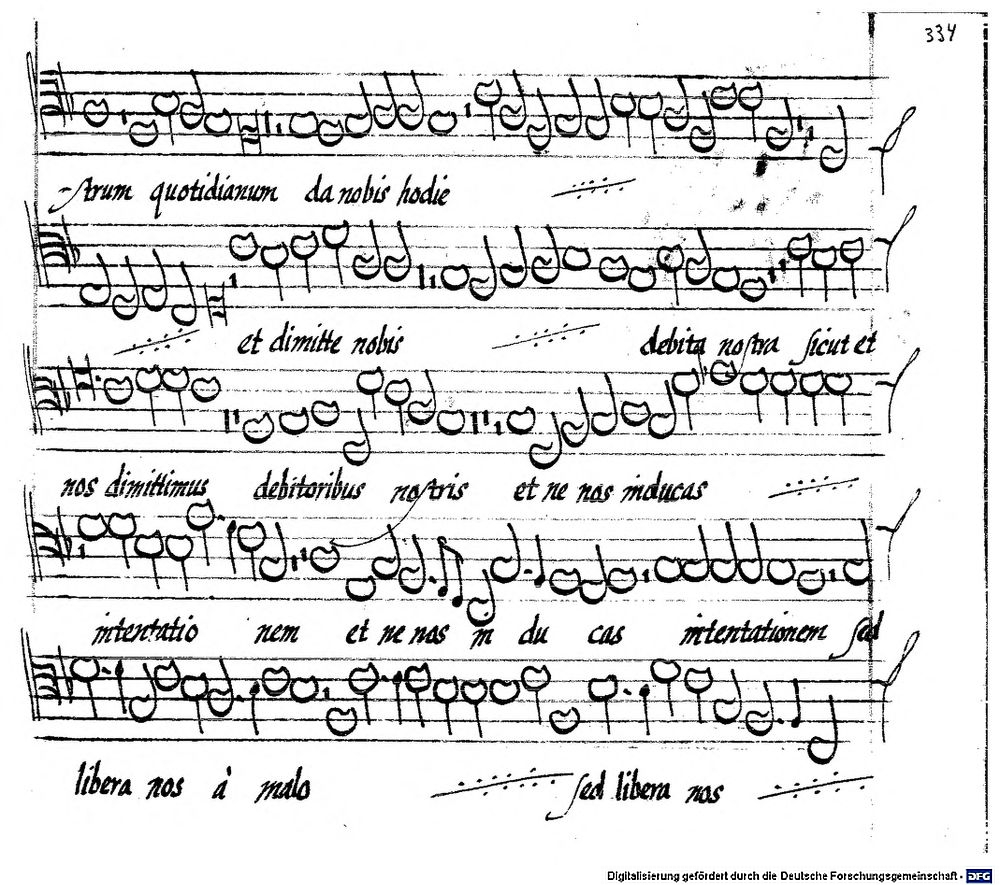 334
strum quotidianum da nobis hodie
et dimitte nobis debita nostra sicut et
nos dimittimus debitoribus nostris et ne nos inducas
intentatio nem et ne nos in du cas intentationem sed
libera nos à malo sed libera nos
Digitalisierung gefördert durch die Deutsche Forschungsgemeinschaft - DFG